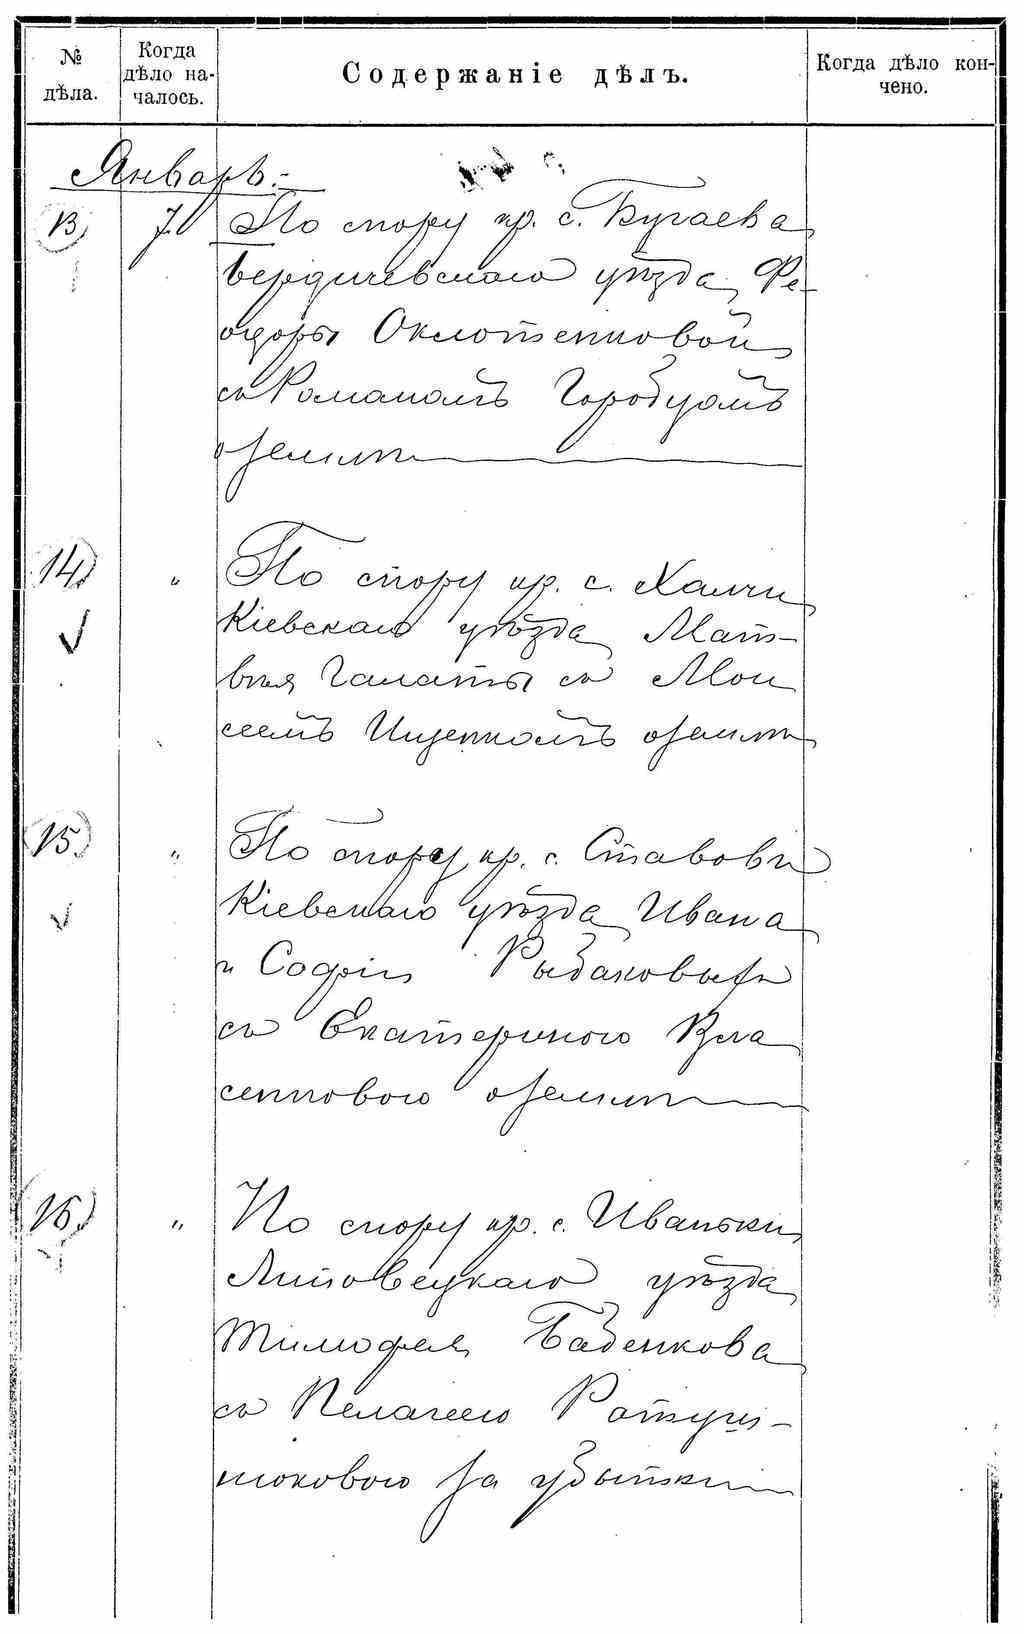 № дѣла.
Когда дѣло началось.
Содержаніе дѣлъ.
Когда дѣло кончено.
Январь.-
13) 7. По спору кр. с. Бугаева
Бердичевскаго уѣзда, Фе-
одоры Оклотенковой
съ Романомъ Городцомъ
о землѣ
14) " По спору кр. с. Халчи
Кіевскаго уѣзда Мат-
вѣя Галаты съ Мои
сеемъ Ищенкомъ о землѣ
15) " По спору кр. с. Ставовъ
Кіевскаго уѣзда Ивана
и Софіи Рыбаковыхъ
съ Екатериною Вла
сенковою о землѣ
16) " По спору кр. с. Иваньки
Липовецкаго уѣзда
Тимофея Бабенкова
съ Пелагеею
за убытки